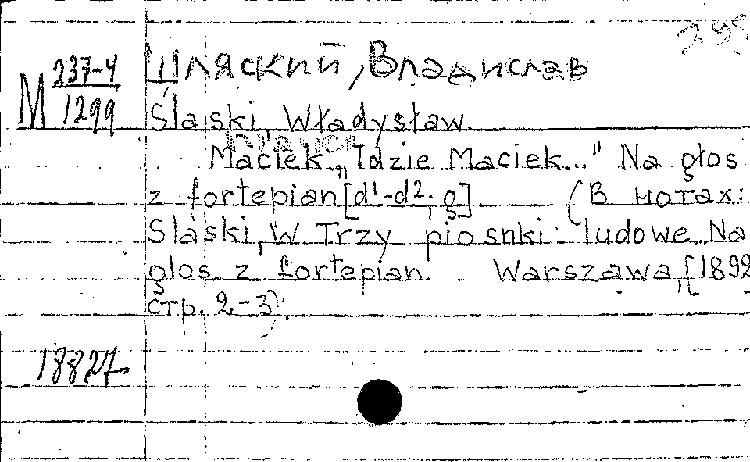 Шляский, Владислав
М 237-4
1299
Śląski, Władysław
Maciek. „Idzie Maciek..." Na głos
z fortepian [d¹-d²; g] (В нотах:
Śląski, W. Trzy piosnki ludowe. Na
głos z fortepian. Warszawa, [1892
стр. 2-3).
18827